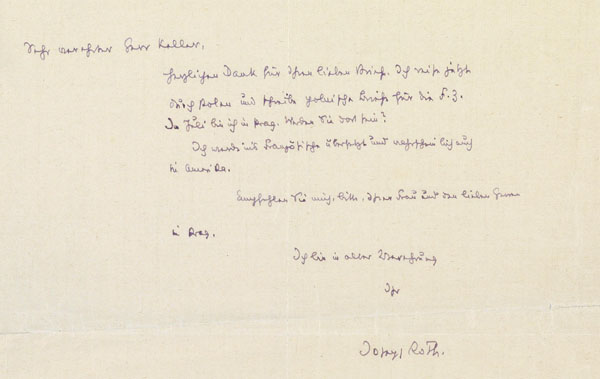 Sehr verehrter Herr Keller,
herzlichen Dank für Ihren lieben Brief. Ich reise jetzt
durch Polen und schreibe polnische Briefe für die F.Z.
Im Juli bin ich in Prag. Werden Sie dort sein?
Ich werde ins Französische übersetzt und wahrscheinlich auch
in Amerika.
Empfehlen Sie mich, bitte, Ihrer Frau und den lieben
in Prag.
Ich bin in alter Verehrung
Ihr
Joseph Roth.